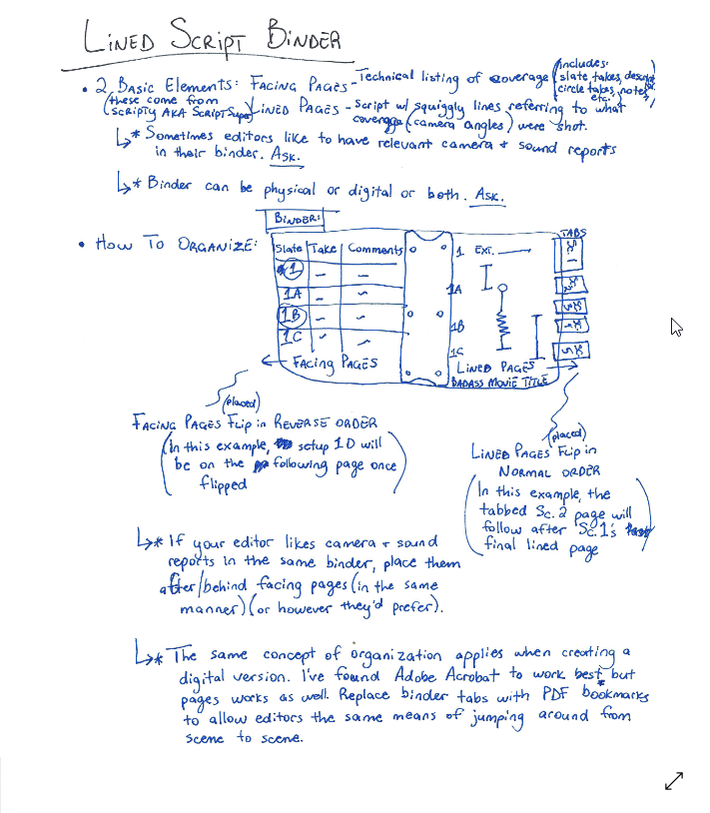 LINED SCRIPT BINDER
• 2 BASIC ELEMENTS: FACING PAGES - Technical listing of coverage (includes: slate, takes, descript, circle takes, notes, etc.)
(these come from SCRIPTY AKA SCRIPT Super) LINED PAGES - Script w/ squiggly lines referring to what
coverage (camera angles) were shot.
↳* Sometimes editors like to have relevant camera + sound reports
in their binder. ASK.
↳* Binder can be physical or digital or both. ASK.
BINDER:
• HOW TO ORGANIZE:
Slate Take Comments
1 – –
1A – –
1B – –
1C – –
← FACING PAGES
1 EXT.
1A
1B
1C
LINED PAGES →
BADASS MOVIE TITLE
TABS
SC 1
SC 2
SC 3
SC 4
SC 5
(placed)
FACING PAGES Flip in REVERSE ORDER
(In this example, setup 1D will
be on the following page once
flipped)
(placed)
LINED PAGES Flip in
NORMAL ORDER
(In this example, the
tabbed Sc. 2 page will
follow after Sc. 1's
final lined page)
↳* If your editor likes camera + sound
reports in the same binder, place them
after/behind facing pages (in the same
manner) (or however they'd prefer).
↳* The same concept of organization applies when creating a
digital version. I've found Adobe Acrobat to work best, but
pages works as well. Replace binder tabs with PDF bookmarks
to allow editors the same means of jumping around from
scene to scene.